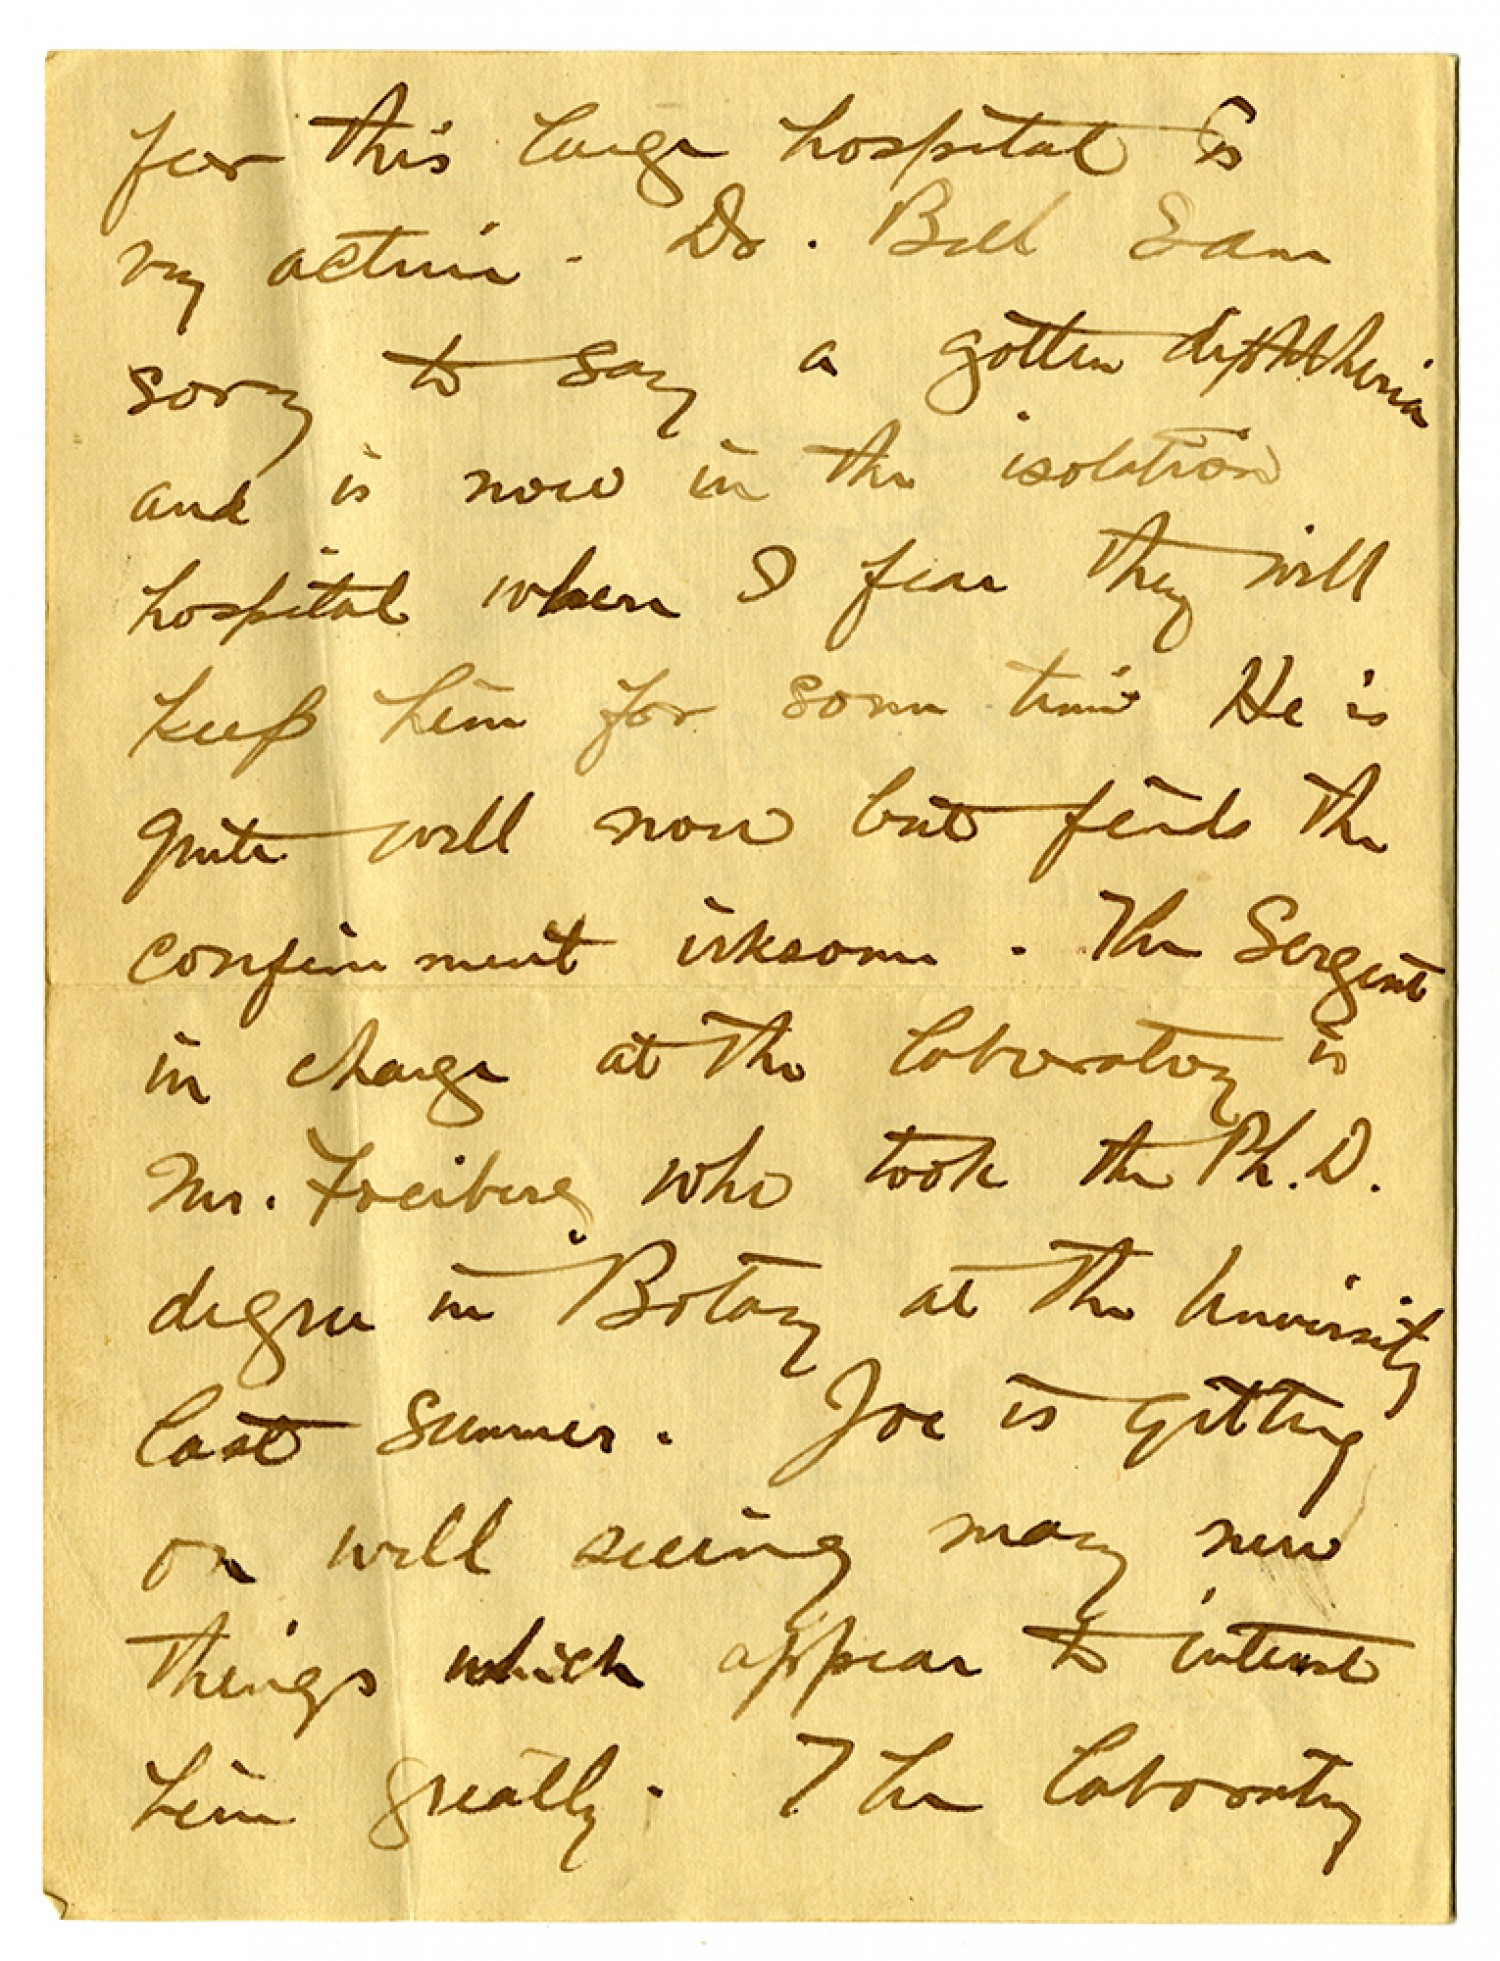 for this large hospital is
very active. Dr. Bell I am
sorry to say a gotten diphtheria
and is now in the isolation
hospital where I fear they will
keep him for some time He is
quite well now but finds the
confinement irksome. The Sergent
in charge at the laboratory is
Mr. Freiberg who took the Ph.D.
degree in Botany at the University
last summer. Joe is getting
on well seeing many new
things which appear to interest
him greatly. The laboratory